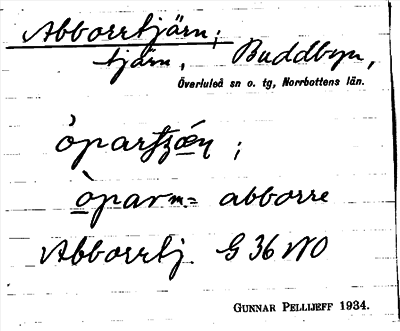 Abborrtjärn;
tjärn, Buddbyn,
Överluleå sn o. tg, Norrbottens län.
òparʃʒǿn̩ ;
òparm= abborre
Abborrtj. G 36 NO
GUNNAR PELLIJEFF 1934.